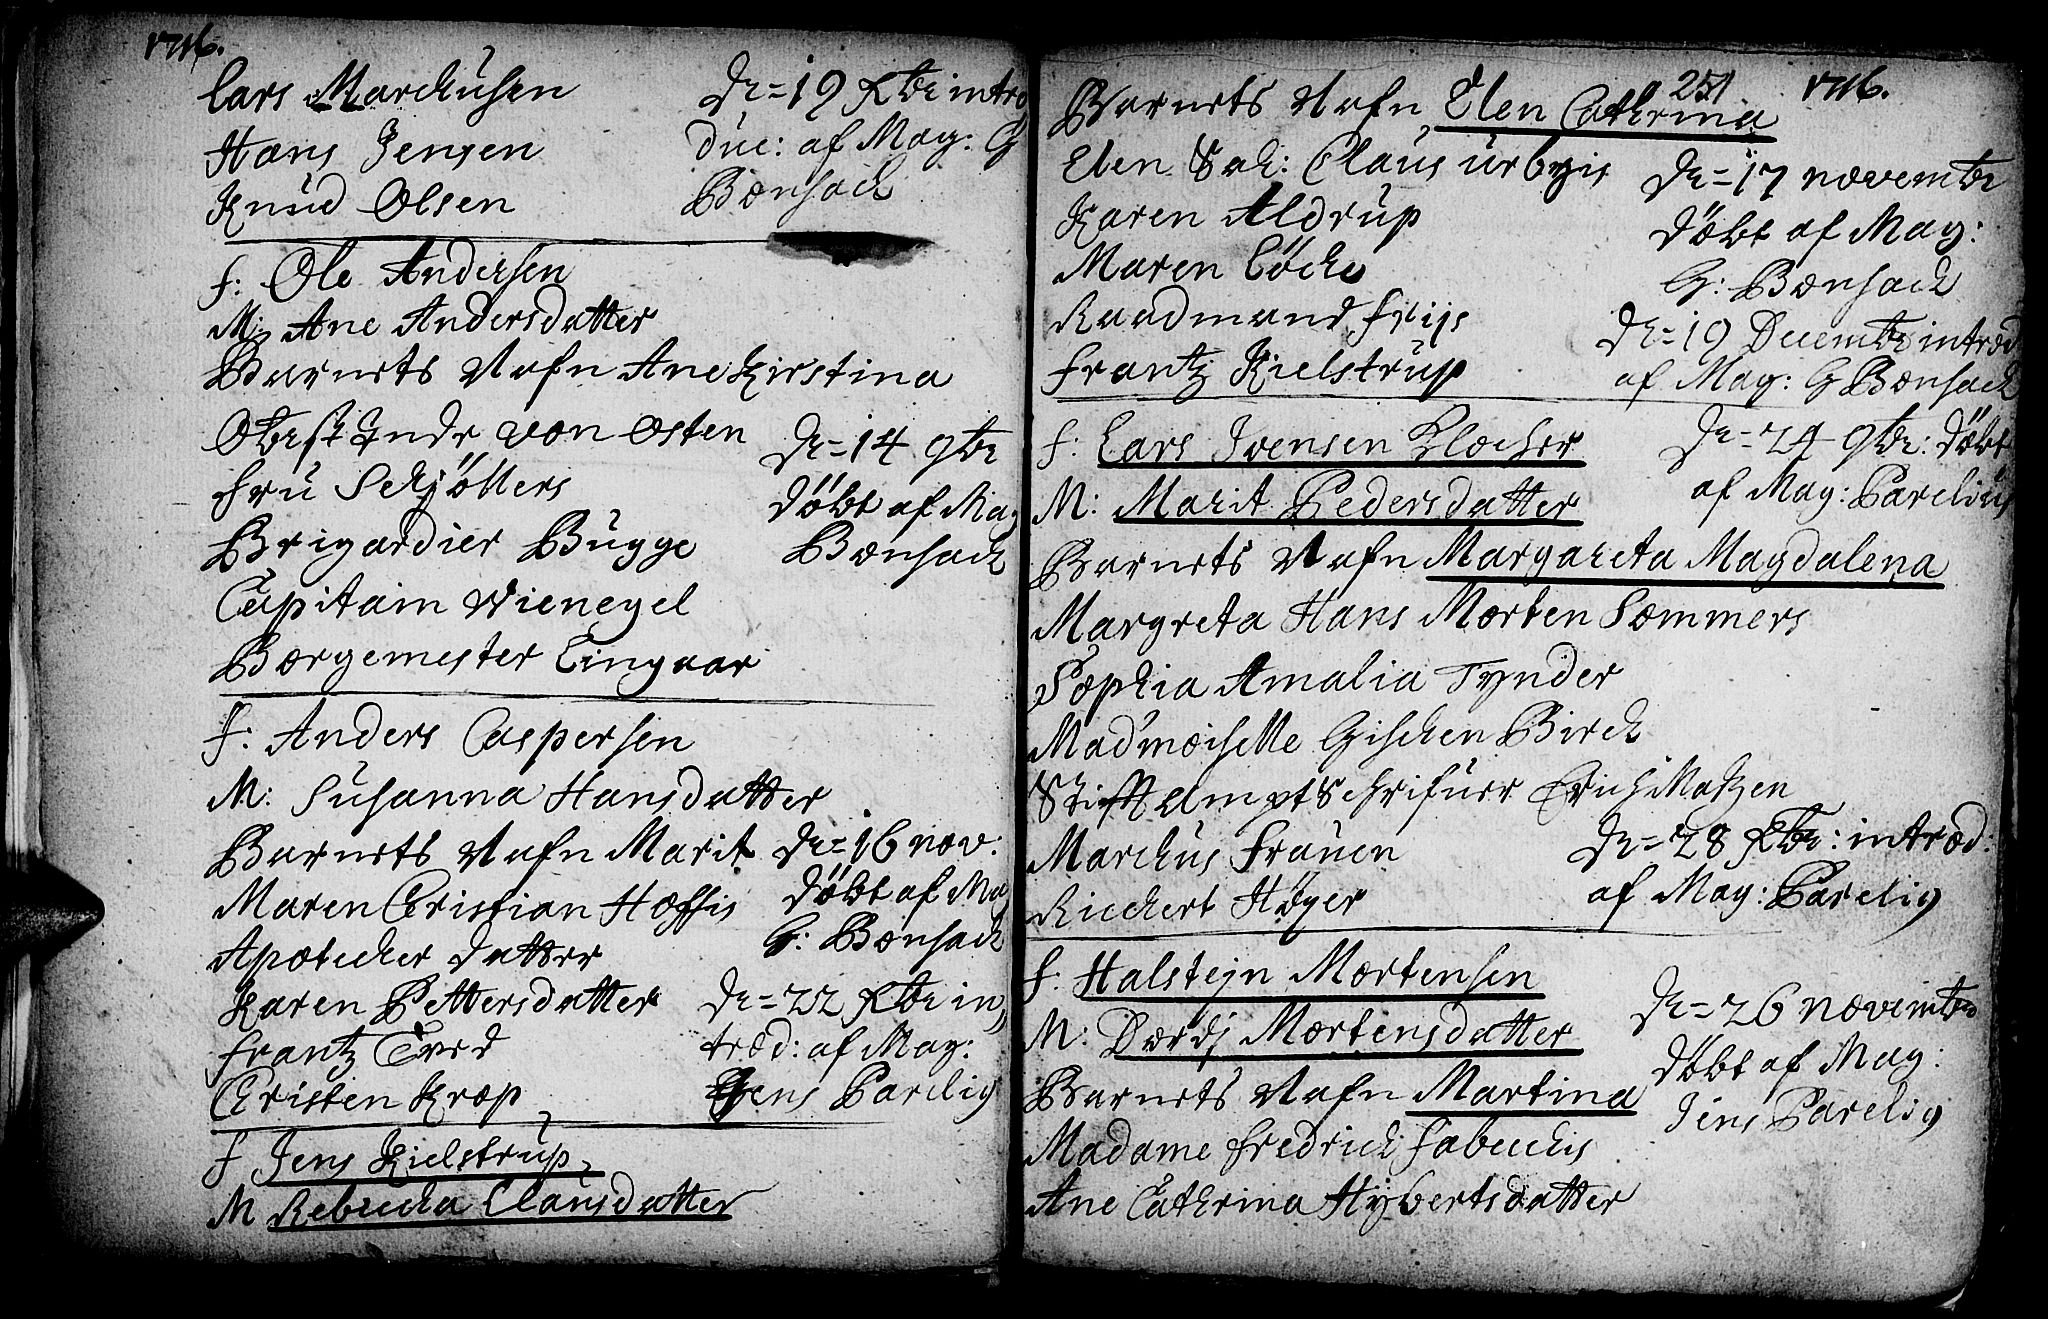 1716.
Lars Marchusen
Hans Jensen
Knud Olsen
De= 19 Xbr intro
duc: af Mag: G
Bonsach
F: Ole Andersen
M: Ane Andersdatter
Barnets Nafn Ane Kirstina
Oberst Lydr von Osten
Fru Schjøllers
Brigardier Bugge
Capitain Wienegel
Borgemester Lingaar
De= 14 9br
døbt af Mag
Bonsach
F: Anders Caspersen
M: Susanna Hansdatter
Barnets Nafn Marit
Maren Christian Hoffis
Apotecher datter
Karen Pettersdatter
Frantz Tved
Christen Krop
De= 16 nov:
døbt af Ma
G: Bonsach
De= 22 Xbr in,
trod: af Mag:
Jens Parelig
F Jens Kielstrup
M Rebecka Clausdatter
251 1716.
Barnets Nafn Elen Cathrina
Elen Sal: Claus urbyis
Karen Aldrup
Maren Løche
Raadmand Friis
Frantz Kielstrup
De= 17 novembr
døbt af Mag:
G: Bonsach
De= 19 Decembr introd
af Mag: G Bonsach
F: Lars Ivensen Klocher
M: Marit Pedersdatter
Barnets Nafn Margareta Magdalena
Margreta Hans Morten Sommers
Sophia Amalia Tynder
Madmoiselle Gischen Birch
Stifft Ampt Schrifuer Erich Matzen
Marchus Frauen
Riechert Høyer
De= 24 9br: døbt
af Mag: Parelius
De= 28 Xbr: introd:
af Mag: Parelig
F: Halstejn Mortensen
M: Dordj Mortensdatter
Barnets Nafn Martina
Madame Fredrich Fabechis
Ane Cathrina Hybertsdatter
De= 26 novembr
døbt af Mag:
Jens Parelig